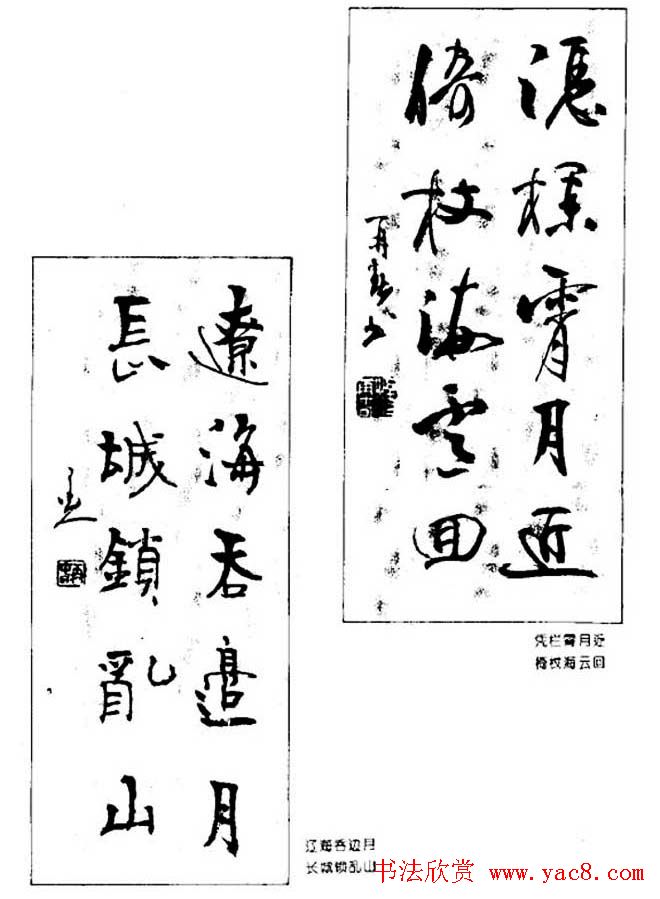 凭欄霄月近
倚杖海雲回
凭栏霄月近
倚杖海云回
遼海吞邊月
長城鎖亂山
辽海吞边月
长城锁乱山
书法欣赏 www.yac8.com